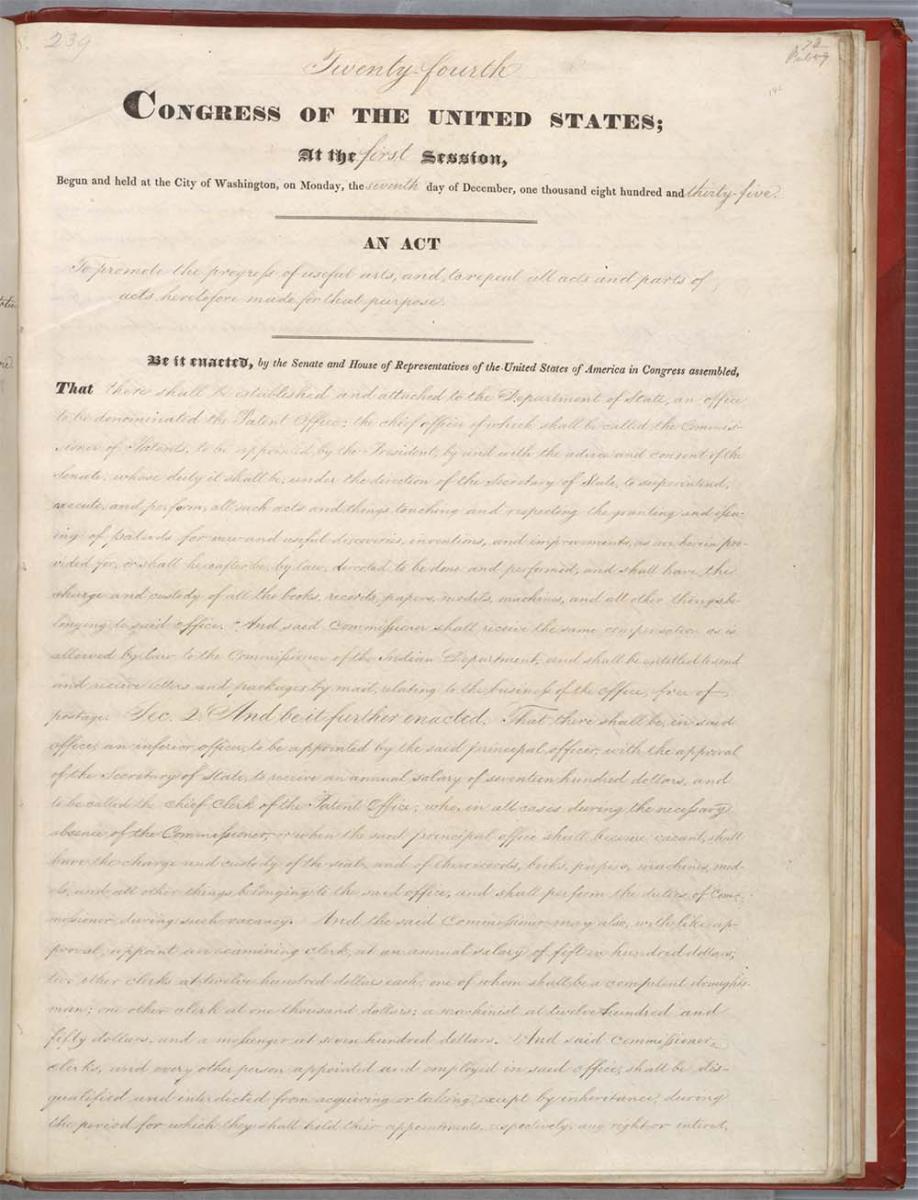 239
72
Twenty-fourth
CONGRESS OF THE UNITED STATES;
At the first Session,
Begun and held at the City of Washington, on Monday, the seventh day of December, one thousand eight hundred and thirty-five.
AN ACT
To promote the progress of useful arts, and to repeal all acts and parts of
acts heretofore made for that purpose.
Be it enacted, by the Senate and House of Representatives of the United States of America in Congress assembled,
That there shall be established and attached to the Department of State, an office
to be denominated the Patent Office; the chief officer of which shall be called the Commis-
sioner of Patents, to be appointed by the President, by and with the advice and consent of the
Senate, whose duty it shall be, under the direction of the Secretary of State, to superintend,
execute, and perform, all such acts and things touching and respecting the granting and issu-
ing of patents for new and useful discoveries, inventions, and improvements, as are herein pro-
vided for, or shall hereafter be, by law, directed to be done and performed, and shall have the
charge and custody of all the books, records, papers, models, machines, and all other things be-
longing to said office. And said Commissioner shall receive the same compensation as is
allowed by law to the Commissioner of the Indian Department, and shall be entitled to send
and receive letters and packages by mail, relating to the business of the office, free of
postage. Sec. 2. And be it further enacted, That there shall be, in said
office, an inferior officer, to be appointed by the said principal officer, with the approval
of the Secretary of State, to receive an annual salary of seventeen hundred dollars, and
to be called the Chief Clerk of the Patent Office; who, in all cases during the necessary
absence of the Commissioner, or when the said principal office shall become vacant, shall
have the charge and custody of the seal, and of the records, books, papers, machines, mod-
els, and all other things belonging to the said office, and shall perform the duties of Com-
missioner during such vacancy. And the said Commissioner may also, with like ap-
proval, appoint an examining clerk, at an annual salary of fifteen hundred dollars;
two other clerks at twelve hundred dollars each, one of whom shall be a competent draughts-
man; one other clerk at one thousand dollars; a machinist at twelve hundred and
fifty dollars, and a messenger at seven hundred dollars. And said Commissioner,
clerks, and every other person appointed and employed in said office, shall be dis-
qualified and interdicted from acquiring or taking, except by inheritance, during
the period for which they shall hold their appointments, respectively, any right or interest,